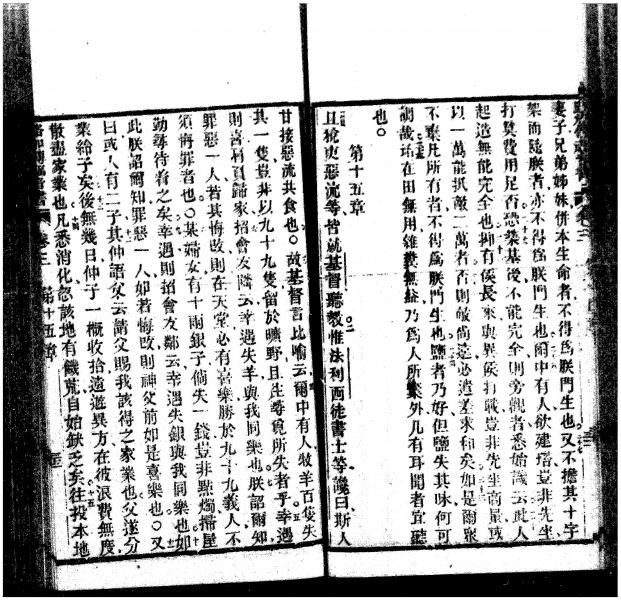 妻子兄弟姊妹併本生命者不得爲朕門生也又不擔其十字
架而隨朕者亦不得爲朕門生也爾中有人欲建塔豈非先坐
打算費用足否恐築基後不能完全則旁觀者悉始譏云此人
起造無能完全也抑有侯長來與異侯打戰豈非先坐商量或
以一萬能抵敵二萬者否則敵尚遠必遣差求和矣如是爾衆
不棄凡所有者不得爲朕門生也鹽者乃好但鹽失其味何可
調哉在田無用雜糞無益乃爲人所棄外凡有耳聞者宜聽
也。
第十五章
且稅吏惡流等皆就基督聽教惟法利西徒書士等譏曰斯人
甘接惡流共食也。故基督言比喻云爾中有人牧羊百隻失
其一隻豈非以九十九隻留於曠野且往尋覓所失者乎幸遇
則喜樯負歸家招會友隣云幸遇失羊與我同樂也朕詔爾知
罪惡一人若其悔改則在天堂必有喜樂勝於九十九義人不
須悔罪者也。又某婦女有十兩銀子倘失一錢豈非點燭掃屋
勤尋待着之矣幸遇則招會友鄰云幸遇失銀與我同樂也如
此朕詔爾知罪惡一人如若悔改則神父前如是喜樂也。又
曰或人有二子其仲語父云請父賜我該得之家業也父遂分
業給子矣後無幾日仲子一槪收拾遠遊異方在彼浪費無度
散盡家業也凡悉消化忽該地有饑荒自始缺乏矣往投本地
卷三 第十五章